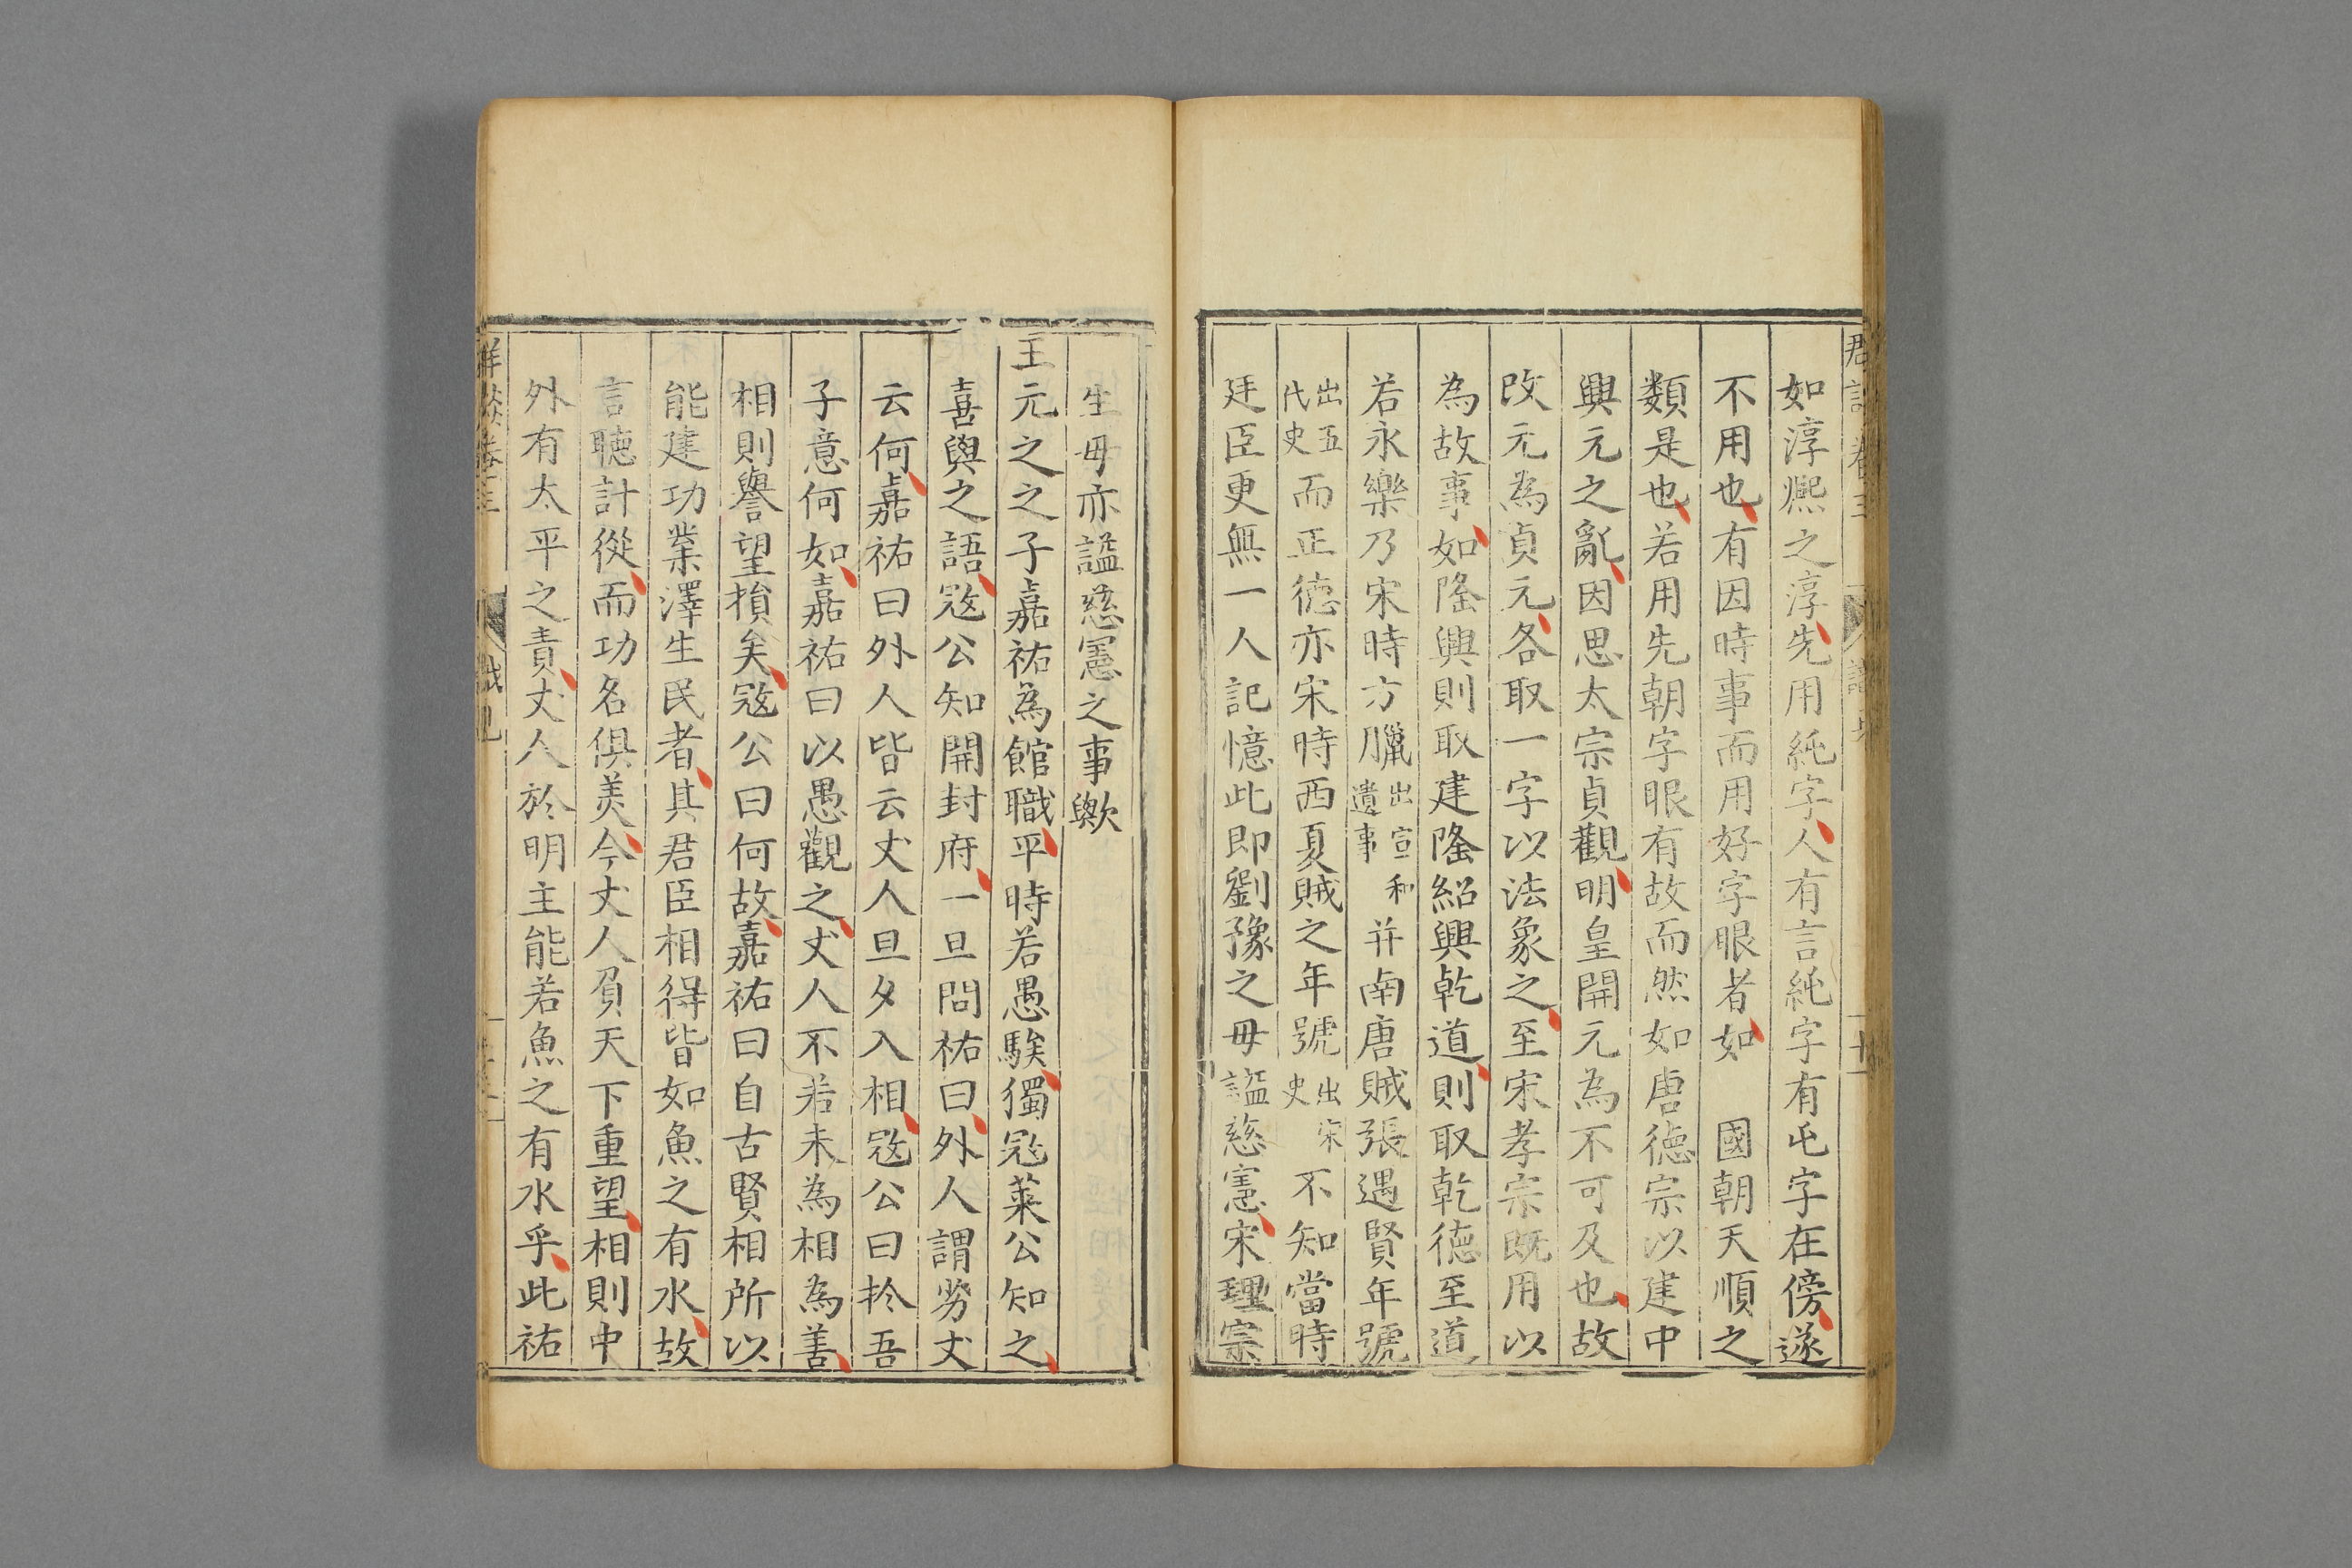 如淳熈之淳先用純字人有言純字有屯字在傍遂
不用也有因時事而用好字眼者如　國朝天順之
類是也若用先朝字眼有故而然如唐德宗以建中
興元之亂因思太宗貞觀明皇開元為不可及也故
改元為貞元各取一字以法象之至宋孝宗既用以
為故事如隆興則取建隆紹興乾道則取乾德至道
若永樂乃宋時方臘出宣和遺事并南唐賊張遇賢年號
出五代史而正德亦宋時西夏賊之年號出宋史不知當時
廷臣更無一人記憶此即劉豫之母謚慈憲宋理宗
生母亦謚慈憲之事歟
王元之之子嘉祐為館職平時若愚騃獨寇萊公知之
喜與之語寇公知開封府一旦問祐曰外人謂劣丈
云何嘉祐曰外人皆云丈人旦夕入相寇公曰於吾
子意何如嘉祐曰以愚觀之丈人不若未為相為善
相則譽望損矣寇公曰何故嘉祐曰自古賢相所以
能建功業澤生民者其君臣相得皆如魚之有水故
言聽計從而功名俱美今丈人負天下重望相則中
外有太平之責丈人於明主能若魚之有水乎此祐